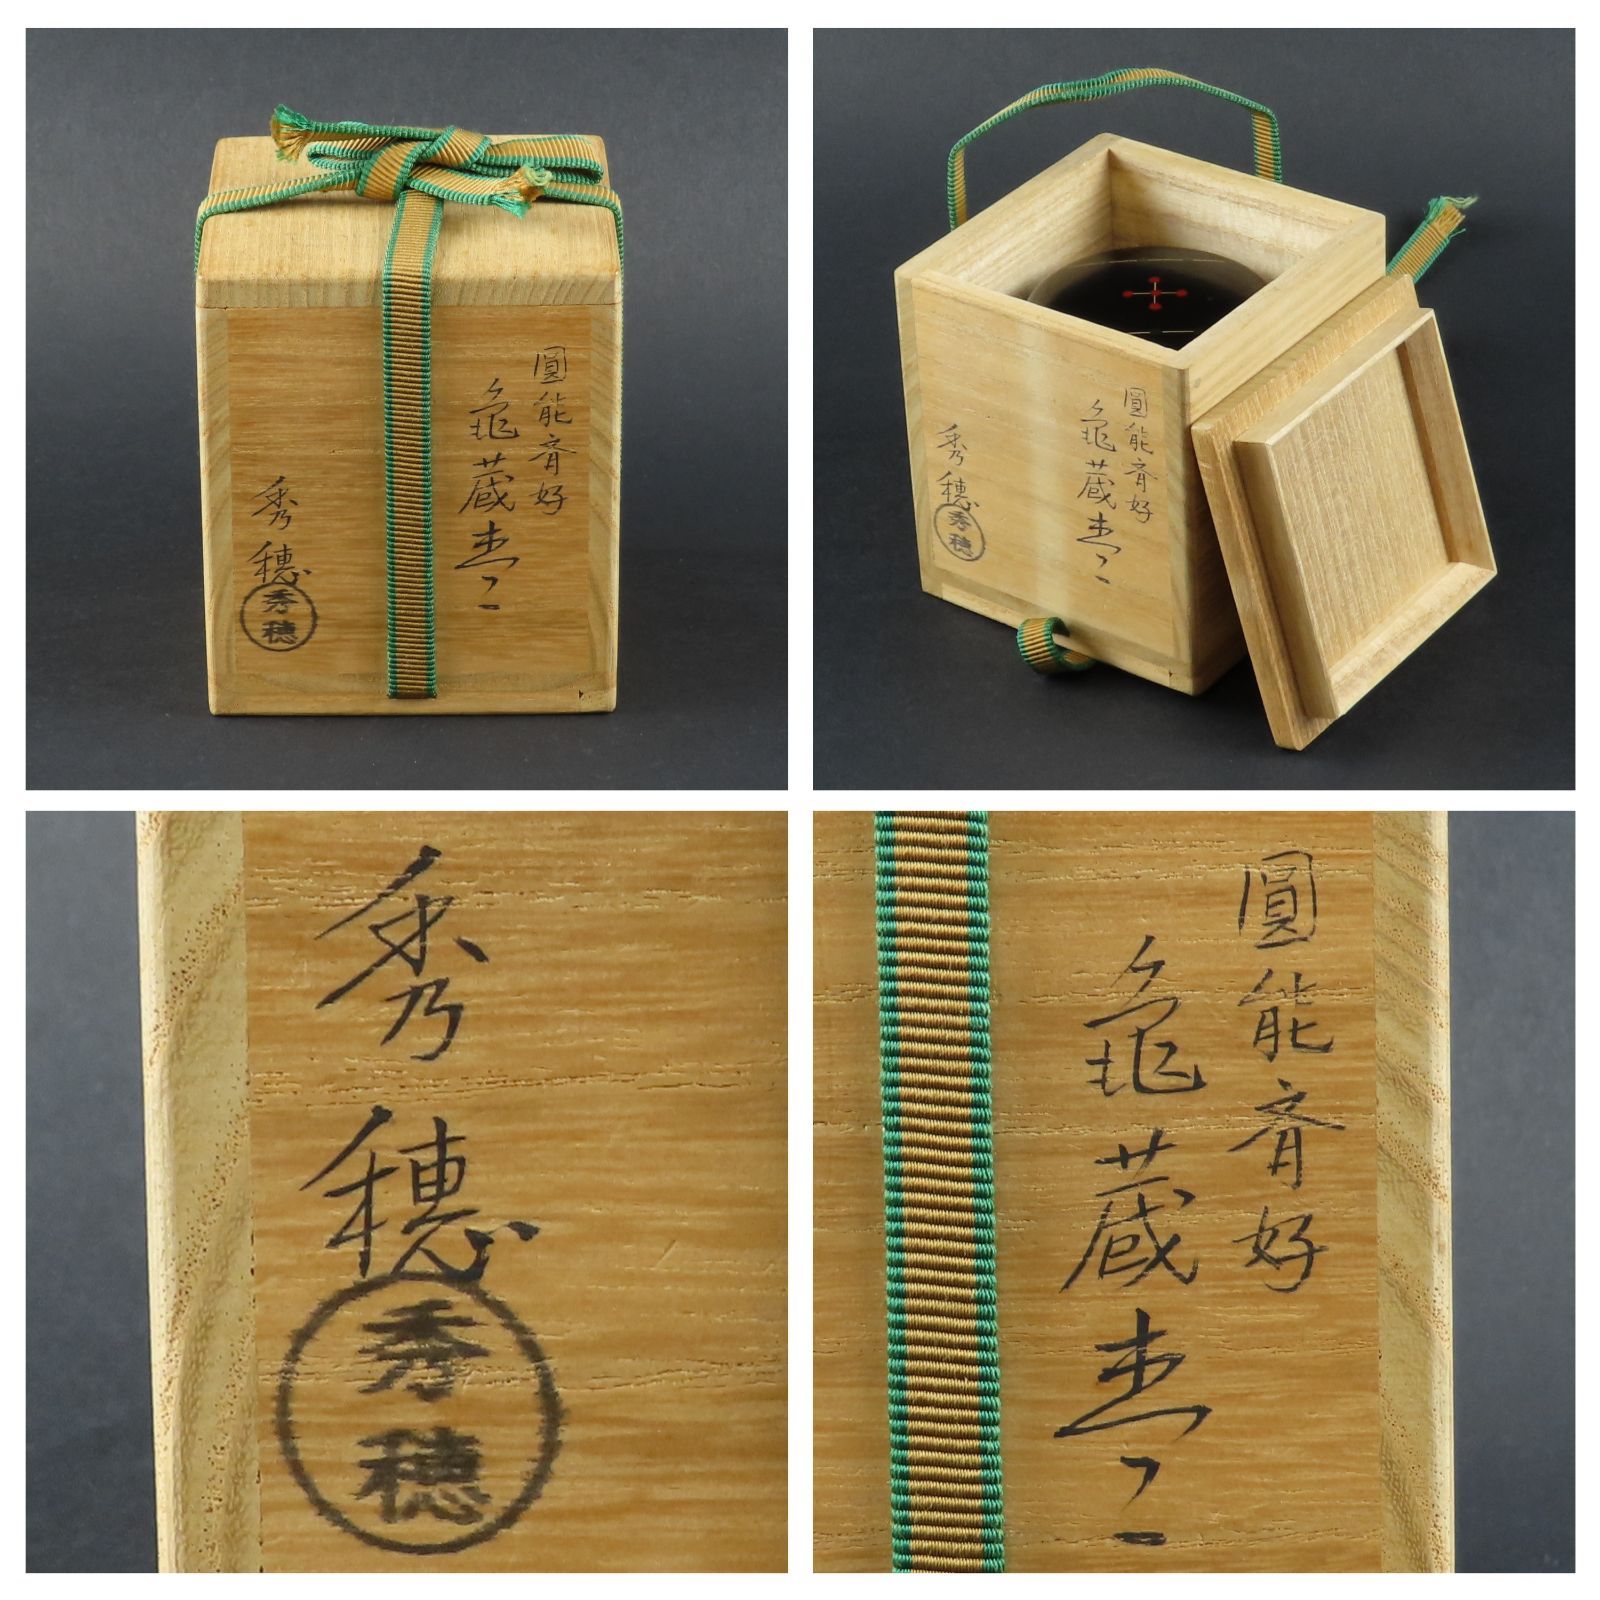 圓能斎好
亀蔵棗
秀穂
秀穂
圓能斎好
亀蔵棗
秀穂
秀穂
秀穂
秀穂
圓能斎好
亀蔵棗